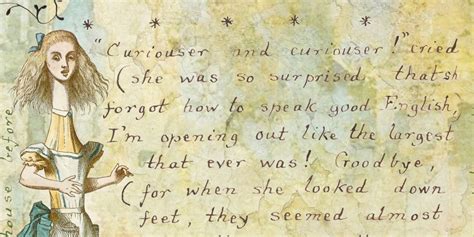 "Curiouser and curiouser!" cried
(she was so surprised, that sh
forgot how to speak good English,
I'm opening out like the largest
that ever was! Goodbye,
(for when she looked down
feet, they seemed almost
house before